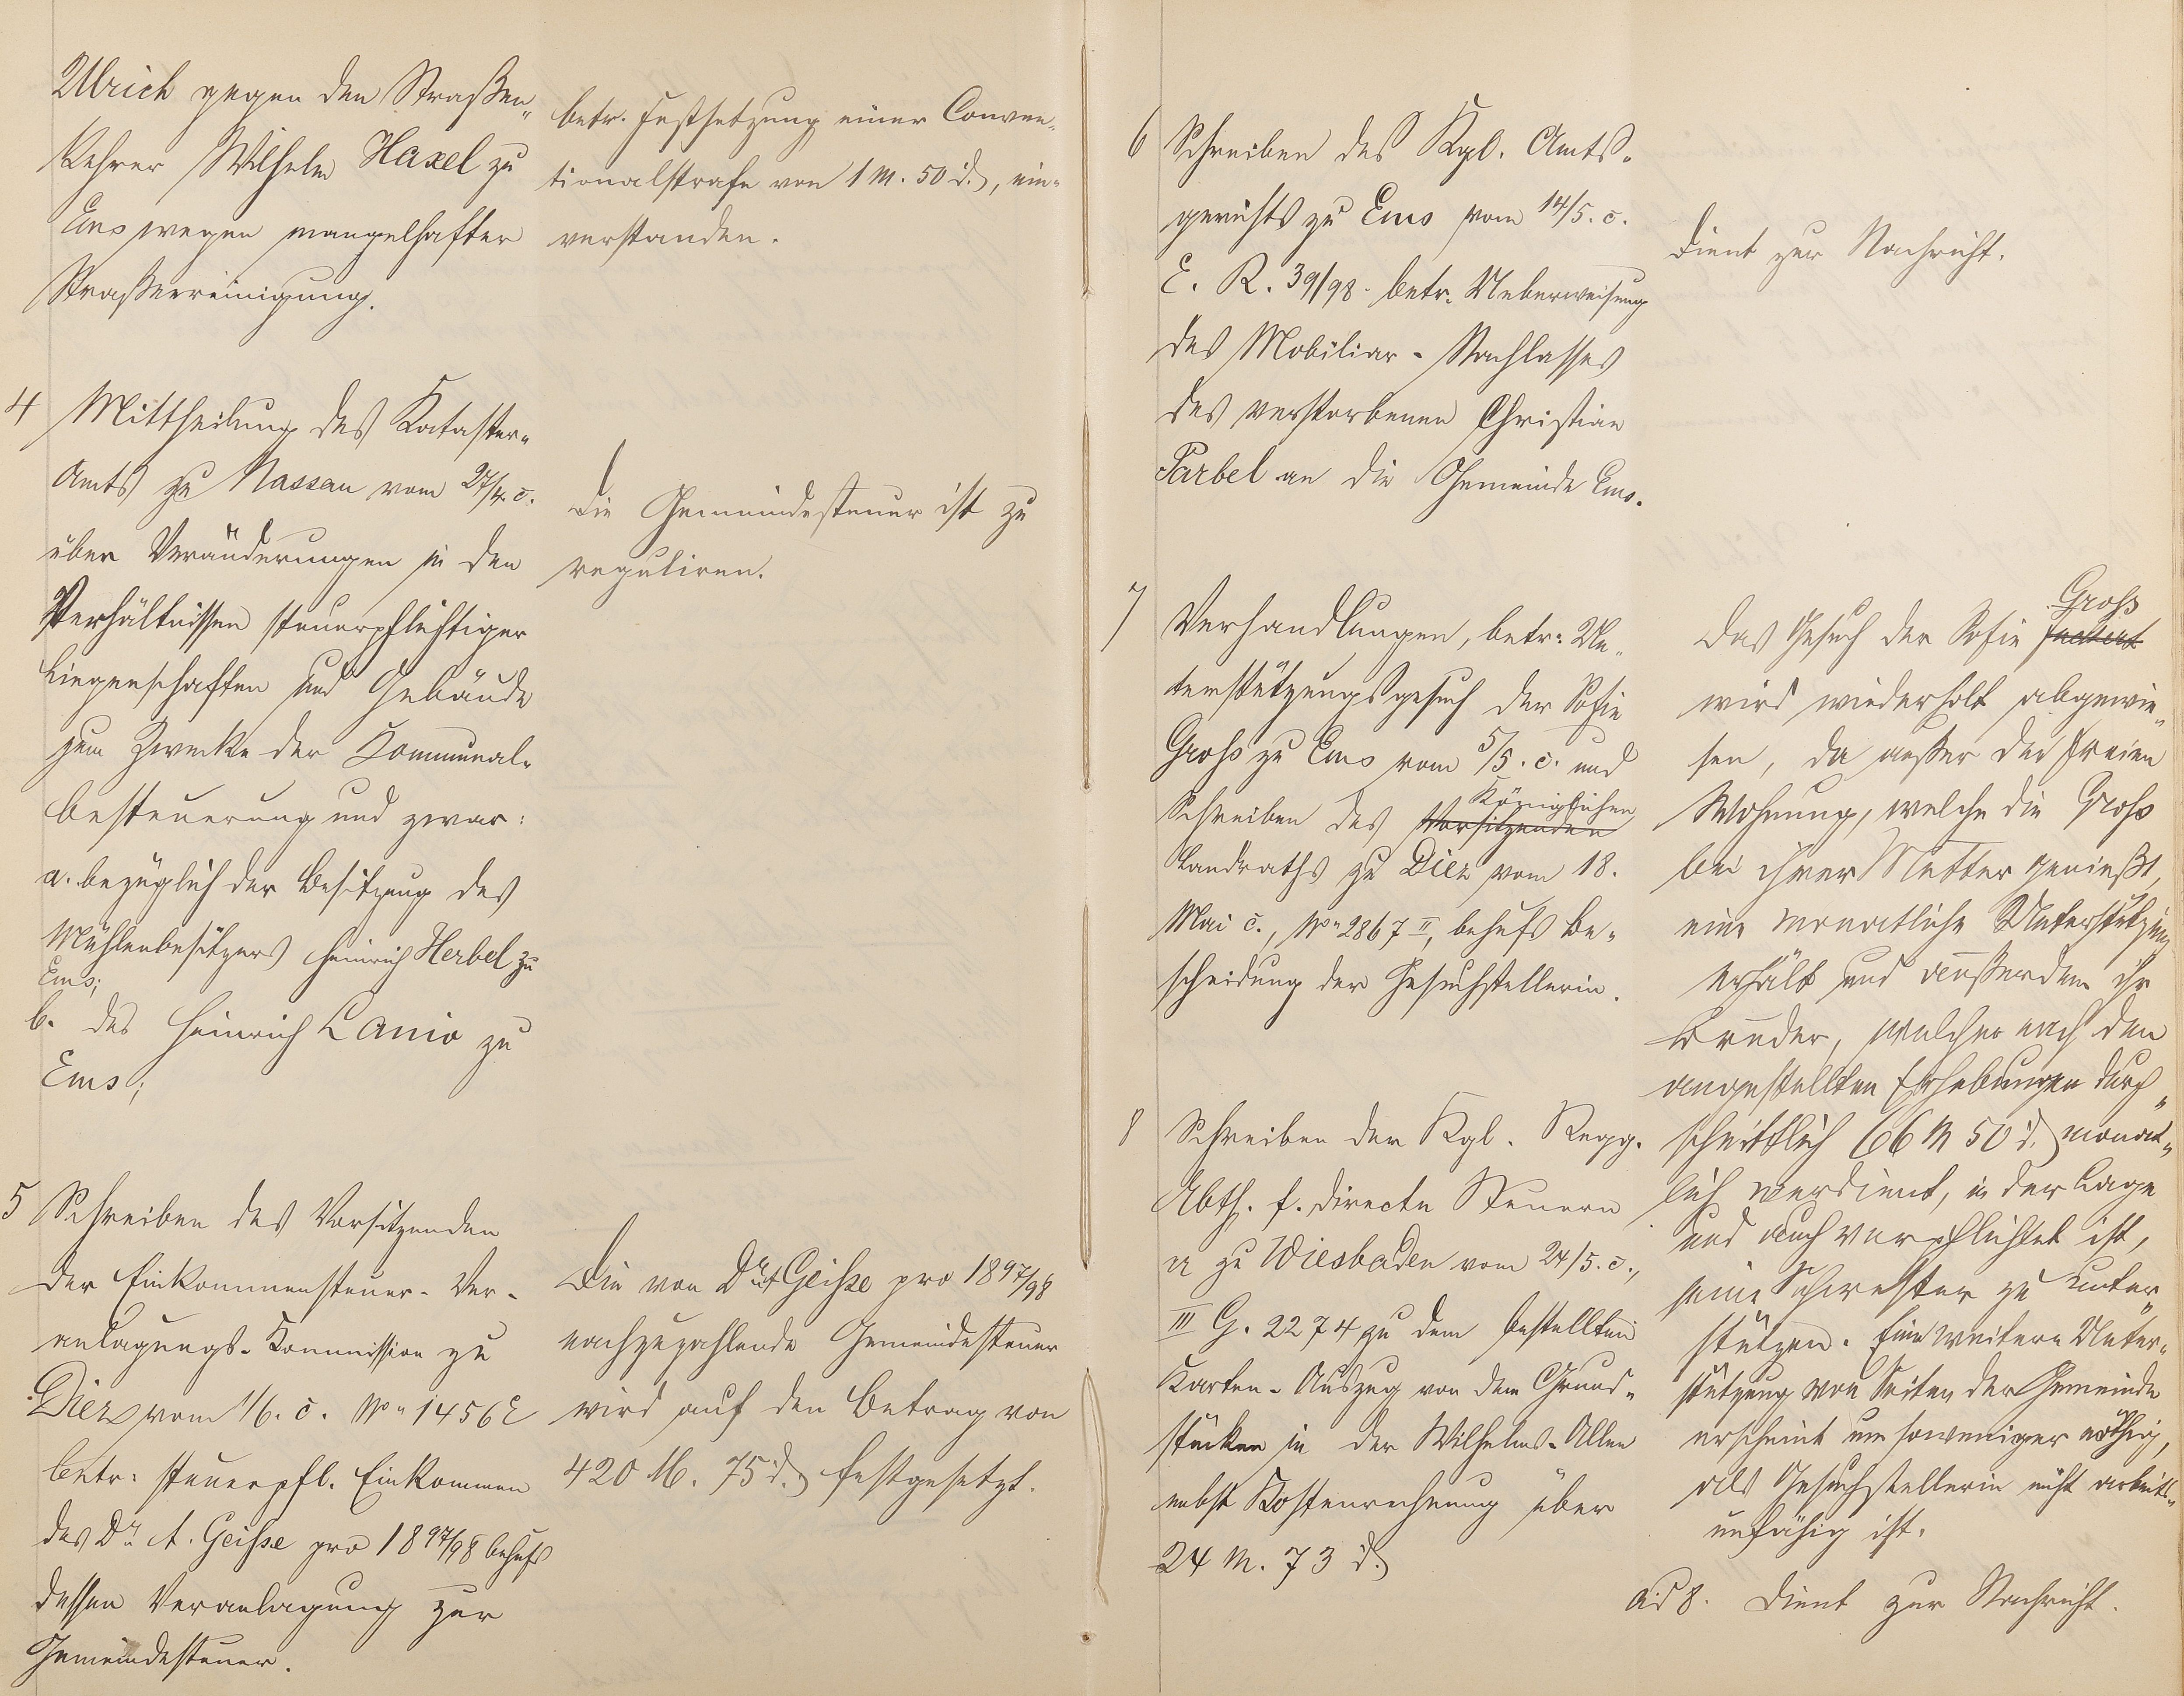 Ulrich gegen den Straßen„
kehrer Wilhelm Haxel zu
Ems wegen mangelhafter
Straßenreinigung.
betr. Festsetzung einer Conven„
tionalstrafe von 1 M. 50 d., ein„
verstanden.
4 Mittheilung des Kataster„
Amts zu Nassau vom 27/4. c.
über Veränderungen in den
Verhältnissen steuerpflichtiger
Liegenschaften und Gebäude
zum Zwecke der Kommunal„
besteuerung und zwar:
a. bezüglich der Besitzung des
Mühlenbesitzers Heinrich Herbel zu
Ems;
b. des Heinrich Lanio zu
Ems;
Die Gemeindesteuer ist zu
reguliren.
5 Schreiben des Vorsitzenden
der Einkommensteuer-Ver-
anlagungs-Kommission zu
Diez vom 1/6. c. No 1456 E
betr: steuerpfl. Einkommen
des Dr. A. Geisse pro 1897/98 behufs
dessen Veranlagung zur
Gemeindesteuer.
Die von Dr. A. Geisse pro 1897/98
nachzuzahlende Gemeindesteuer
wird auf den Betrag von
420 M. 75 d. festgesetzt.
6 Schreiben des Kgl. Amts„
gerichts zu Ems vom 14/5. c.
E. R. 39/98. betr. Ueberweisung
des Mobiliar-Nachlasses
des verstorbenen Christian
Farbel an die Gemeinde Ems.
Dient zur Nachricht.
7 Verhandlungen, betr: Un„
terstützungsgesuch der Sofie
Groß zu Ems vom 5/5. c. und
Königlichen
Schreiben des Vorsitzenden
Landraths zu Diez vom 18.
Mai c., No 2867 II, behufs Be„
scheidung der Gesuchstellerin.
Groß
Das Gesuch der Sofie
wird wiederholt abgewie„
sen, da außer der freien
Wohnung, welche die Groß
bei ihrer Mutter genießt,
eine monatliche Unterstützung
erhält und außerdem ihr
Bruder, welcher nach den
angestellten Erhebungen durch„
schnittlich 66 M 50 d. monat„
lich verdient, in der Lage
und auch verpflichtet ist,
seine Schwester zu unter„
stützen. Eine weitere Unter„
stützung von Seiten der Gemeinde
erscheint um soweniger nöthig,
als Gesuchstellerin nicht arbeits„
unfähig ist.
8 Schreiben der Kgl. Regg.
Abth. f. directe Steuern
zu Wiesbaden vom 24/5. c.,
III G. 2274 zu dem bestellten
Karten-Auszug von den Grund„
stücken in der Wilhelms-Allee
nebst Kostenrechnung über
24 M. 73 d.
ad 8. Dient zur Nachricht.